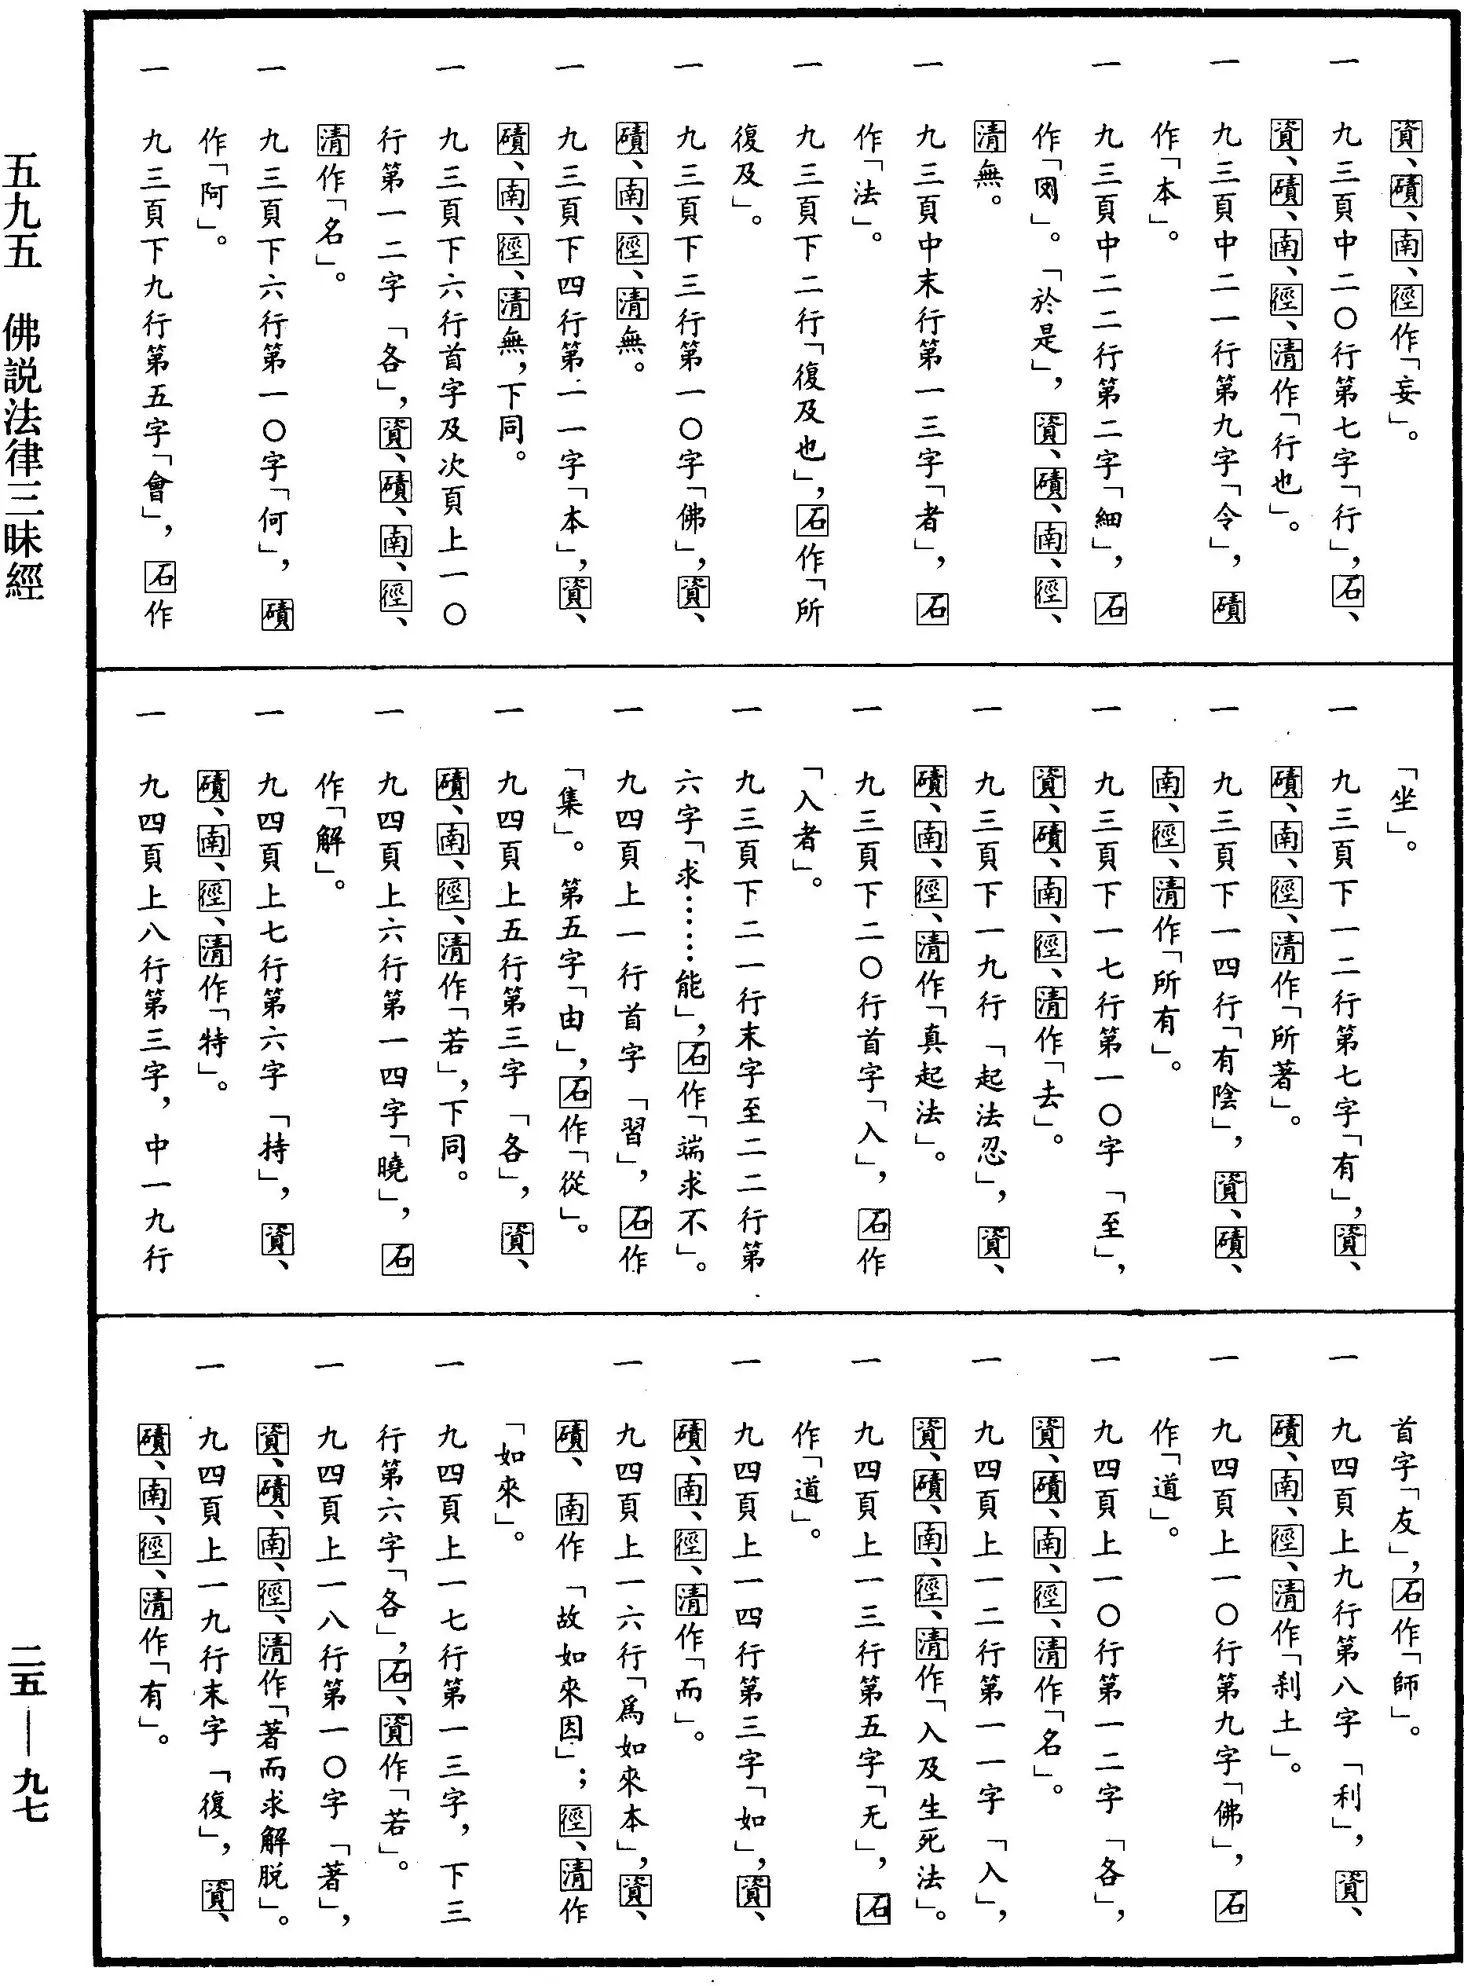 資、磧、南、徑作「妄」。
一 九三頁中二〇行第七字「行」，石、
資、磧、南、徑、清作「行也」。
一 九三頁中二一行第九字「令」，磧
作「本」。
一 九三頁中二二行第二字「細」，石
作「罔」。「於是」，資、磧、南、徑、
清無。
一 九三頁中末行第一三字「者」，石
作「法」。
一 九三頁下二行「復及也」，石作「所
復及」。
一 九三頁下三行第一〇字「佛」，資、
磧、南、徑、清無。
一 九三頁下四行第一一字「本」，資、
磧、南、徑、清無，下同。
一 九三頁下六行首字及次頁上一〇
行第一二字「各」，資、磧、南、徑、
清作「名」。
一 九三頁下六行第一〇字「何」，磧
作「阿」。
一 九三頁下九行第五字「會」，石作
「坐」。
一 九三頁下一二行第七字「有」，資、
磧、南、徑、清作「所著」。
一 九三頁下一四行「有陰」，資、磧、
南、徑、清作「所有」。
一 九三頁下一七行第一〇字「至」，
資、磧、南、徑、清作「去」。
一 九三頁下一九行「起法忍」，資、
磧、南、徑、清作「真起法」。
一 九三頁下二〇行首字「入」，石作
「入者」。
一 九三頁下二一行末字至二二行第
六字「求……能」，石作「端求不」。
一 九四頁上一行首字「習」，石作
「集」。第五字「由」，石作「從」。
一 九四頁上五行第三字「各」，資、
磧、南、徑、清作「若」，下同。
一 九四頁上六行第一四字「曉」，石
作「解」。
一 九四頁上七行第六字「持」，資、
磧、南、徑、清作「特」。
一 九四頁上八行第三字，中一九行
首字「友」，石作「師」。
一 九四頁上九行第八字「利」，資、
磧、南、徑、清作「刹土」。
一 九四頁上一〇行第九字「佛」，石
作「道」。
一 九四頁上一〇行第一二字「各」，
資、磧、南、徑、清作「名」。
一 九四頁上一二行第一一字「入」，
資、磧、南、徑、清作「入及生死法」。
一 九四頁上一三行第五字「无」，石
作「道」。
一 九四頁上一四行第三字「如」，資、
磧、南、徑、清作「而」。
一 九四頁上一六行「爲如來本」，資、
磧、南作「故如來因」；徑、清作
「如來」。
一 九四頁上一七行第一三字，下三
行第六字「各」，石、資作「若」。
一 九四頁上一八行第一〇字「著」，
資、磧、南、徑、清作「著而求解脱」。
一 九四頁上一九行末字「復」，資、
磧、南、徑、清作「有」。
五九五 佛説法律三昧經
二五——九七